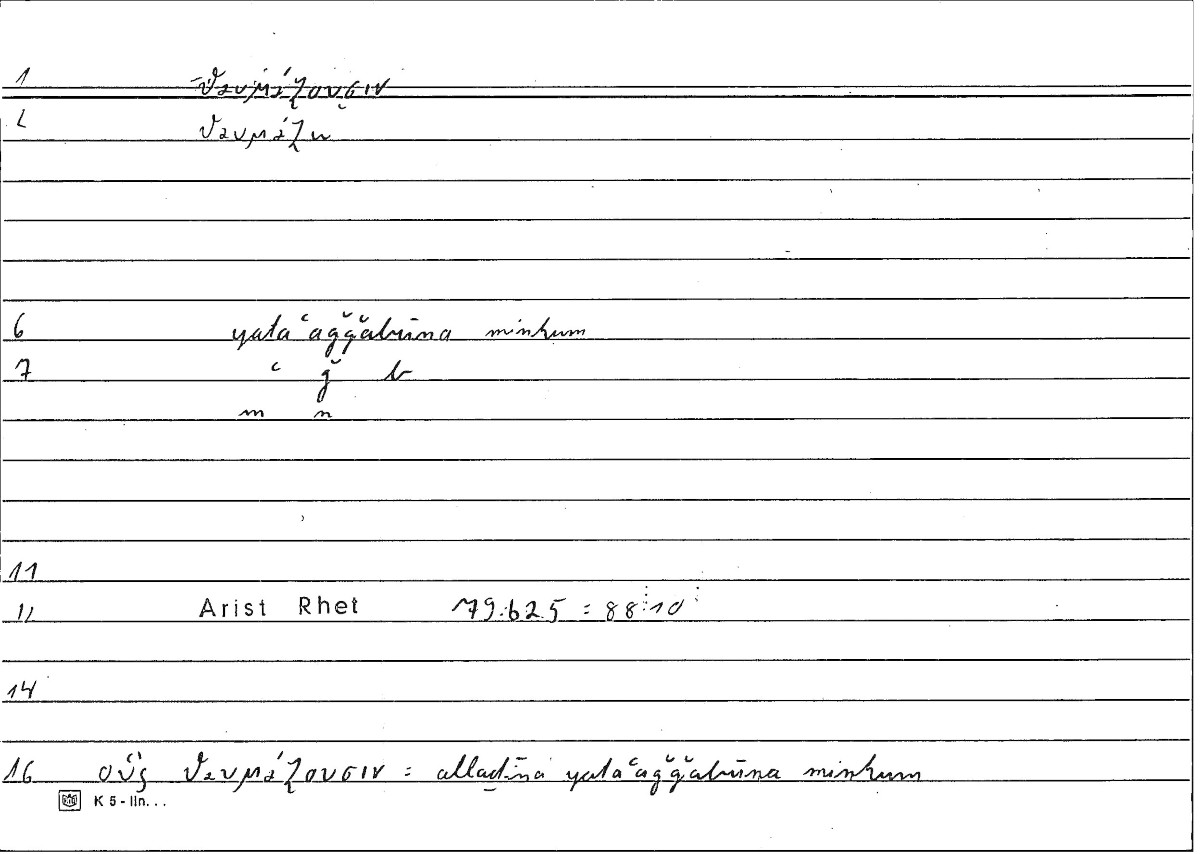 1 θαυμάζουσιν
2 θαυμάζω
6 yataʿaǧǧabūna minkum
7 ʿ ǧ b
m n
11
12 Arist Rhet 79b25 = 88:10
14
16 οὓς θαυμάζουσιν = allaḏīna yataʿaǧǧabūna minkum
K 5 - lin...